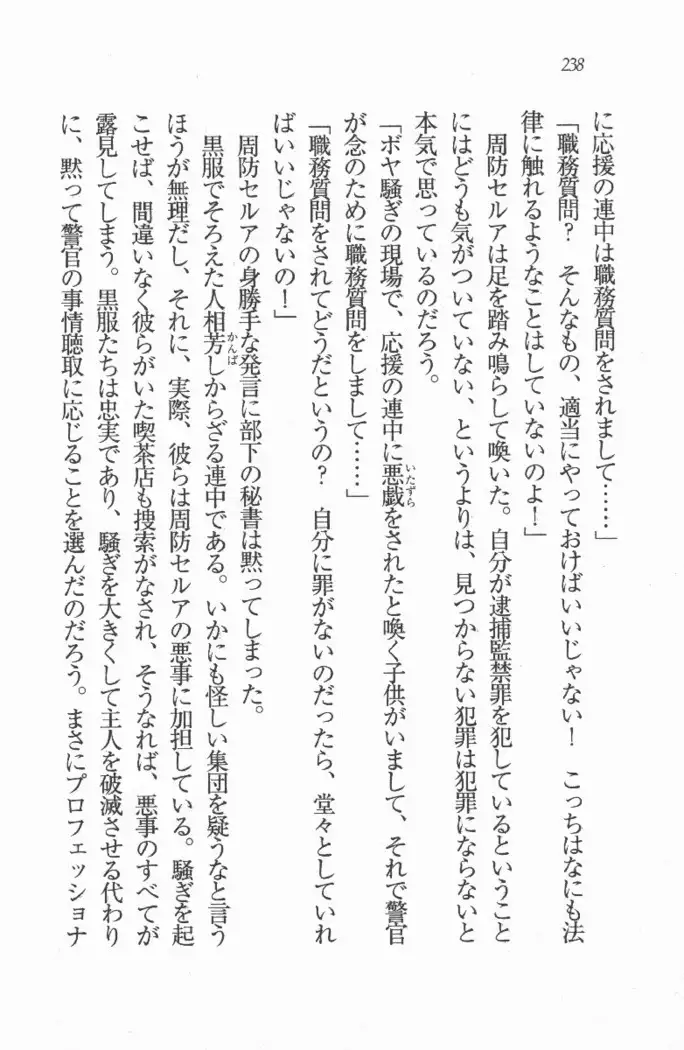 238
に応援の連中は職務質問をされまして……」
「職務質問？　そんなもの、適当にやっておけばいいじゃない！　こっちはなにも法
律に触れるようなことはしていないのよ！」
　周防セルアは足を踏み鳴らして喚いた。自分が逮捕監禁罪を犯しているということ
にはどうも気がついていない、というよりは、見つからない犯罪は犯罪にならないと
本気で思っているのだろう。
「ボヤ騒ぎの現場で、応援の連中に悪戯をされたと喚く子供がいまして、それで警官
が念のために職務質問をしまして……」
「職務質問をされてどうだというの？　自分に罪がないのだったら、堂々としていれ
ばいいじゃないの！」
　周防セルアの身勝手な発言に部下の秘書は黙ってしまった。
　黒服でそろえた人相芳しからざる連中である。いかにも怪しい集団を疑うなと言う
ほうが無理だし、それに、実際、彼らは周防セルアの悪事に加担している。騒ぎを起
こせば、間違いなく彼らがいた喫茶店も捜索がなされ、そうなれば、悪事のすべてが
露見してしまう。黒服たちは忠実であり、騒ぎを大きくして主人を破滅させる代わり
に、黙って警官の事情聴取に応じることを選んだのだろう。まさにプロフェッショナ
いたずら
かんば